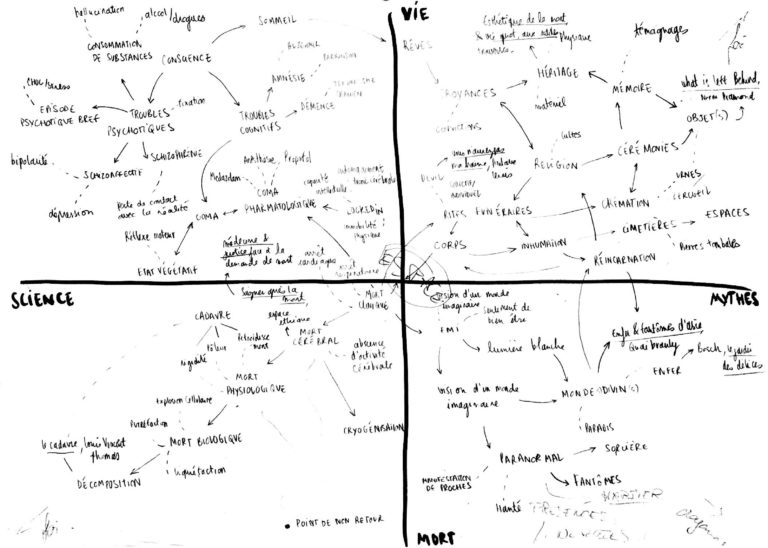 hallucination
alcool/drogues
CONSOMMATION
DE SUBSTANCES
CONSCIENCE
SOMMEIL
CHOC/stress
ÉPISODE
PSYCHOTIQUE BREF
TROUBLES
PSYCHOTIQUES
fixation
TROUBLES
COGNITIFS
AMNÉSIE
DÉMENCE
bipolarité
SCHIZOAFFECTIF
SCHIZOPHRÉNIE
dépression
Perte de contact
avec la réalité
COMA
COMA
PHARMATOLOGIQUE
Propofol
LOCKED IN
immobilité
physique
Réflexe moteur
ETAT VÉGÉTATIF
médecine &
demande de mort
arrêt
cardiaque
arrêt
VIE
RÊVES
Esthétique de la mort,
CROYANCES
HÉRITAGE
matériel
témoignages
MÉMOIRE
what is left behind,
OBJET(S)
cultes
RELIGION
CÉRÉMONIES
DEUIL
RITES FUNÉRAIRES
CRÉMATION
URNES
CERCUEIL
CIMETIÈRES
ESPACES
Pierres tombales
CORPS
INHUMATION
RÉINCARNATION
SCIENCE
MYTHES
Soigner que la
mort,
espace
éthique
CADAVRE
Pâleur
rigidité
MORT
CÉRÉBRALE
MORT
CLINIQUE
absence
d'activité
cérébrale
MORT
PHYSIOLOGIQUE
Explosion cellulaire
Putréfaction
le cadavre, Louis Vincent
Thomas
MORT BIOLOGIQUE
liquéfaction
DÉCOMPOSITION
CRYOGÉNISATION
• POINT DE NON RETOUR
vision d'un monde
imaginaire
sentiment de
bien être
EMI
lumière blanche
vision d'un monde
imaginaire
MONDE DIVIN(S)
Enfer & fantômes d'asie,
Quai branly
ENFER
Bosch, le jardin
des délices
PARADIS
PARANORMAL
SORCIÈRE
MANIFESTATION
DE PROCHES
FANTÔMES
Hanté
MORT